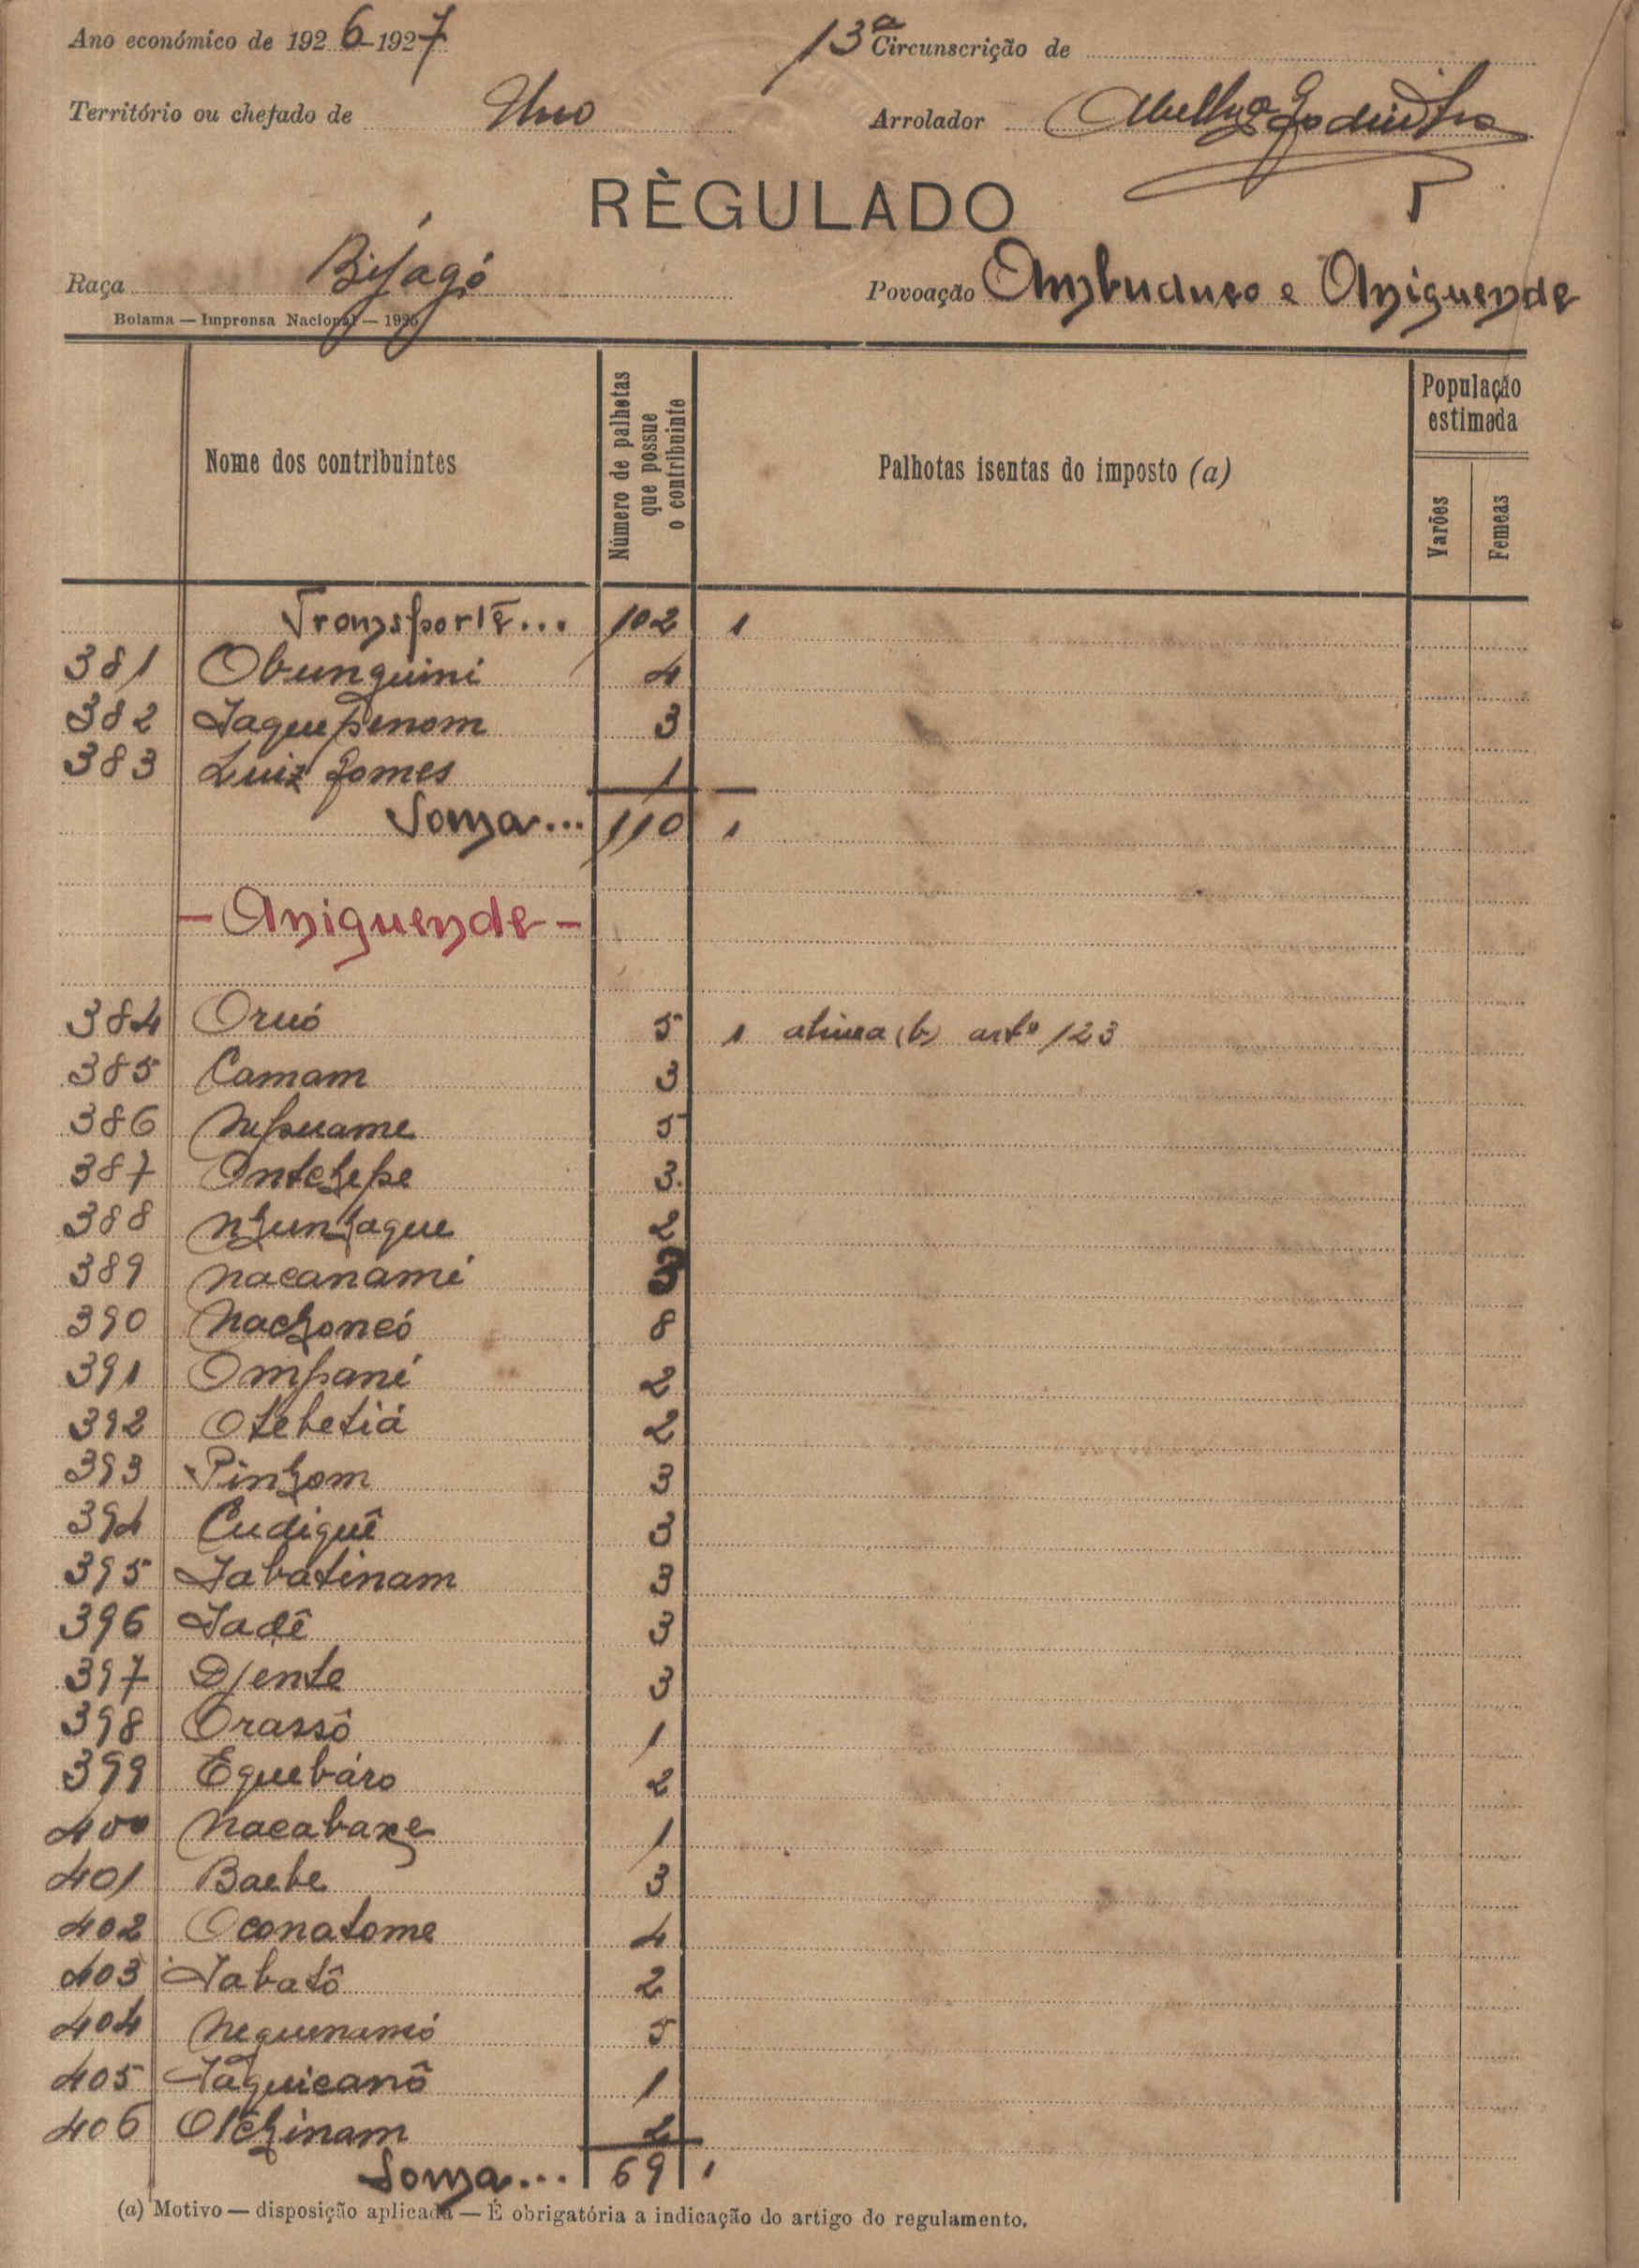 Ano económico de 1926-1927 13ª Circunscrição de
Território ou chefado de Uno Arrolador
RÈGULADO
Raça Bijagó Povoação Ambuduco e Aniguende
Bolama — Imprensa Nacional — 1925
Nome dos contribuintes
Número de palhotas que possue o contribuinte
Palhotas isentas do imposto (a)
População estimada
Varões
Femeas
Transporte... 102 1
381 Obunguini 4
382 Jaquepenom 3
383 Luiz Gomes 1
Soma... 110 1
- Aniguende -
384 Oruó 5 1 alinea (b) artº 123
385 Camam 3
386 Nepuame 5
387 Ontchepe 3
388 Nhunhaque 2
389 Nacanami 3
390 Nachoneó 8
391 Ompani 2
392 Otebetiá 2
393 Pinhom 3
394 Cudiguê 3
395 Jabatinam 3
396 Jadê 3
397 Djente 3
398 Orassô 1
399 Equebáro 2
400 Nacabane 1
401 Baebe 3
402 Oconatome 4
403 Jabatô 2
404 5
405 Jaquicanô 1
406 Otchinam 2
Soma... 69 1
(a) Motivo — disposição aplicada — É obrigatória a indicação do artigo do regulamento.